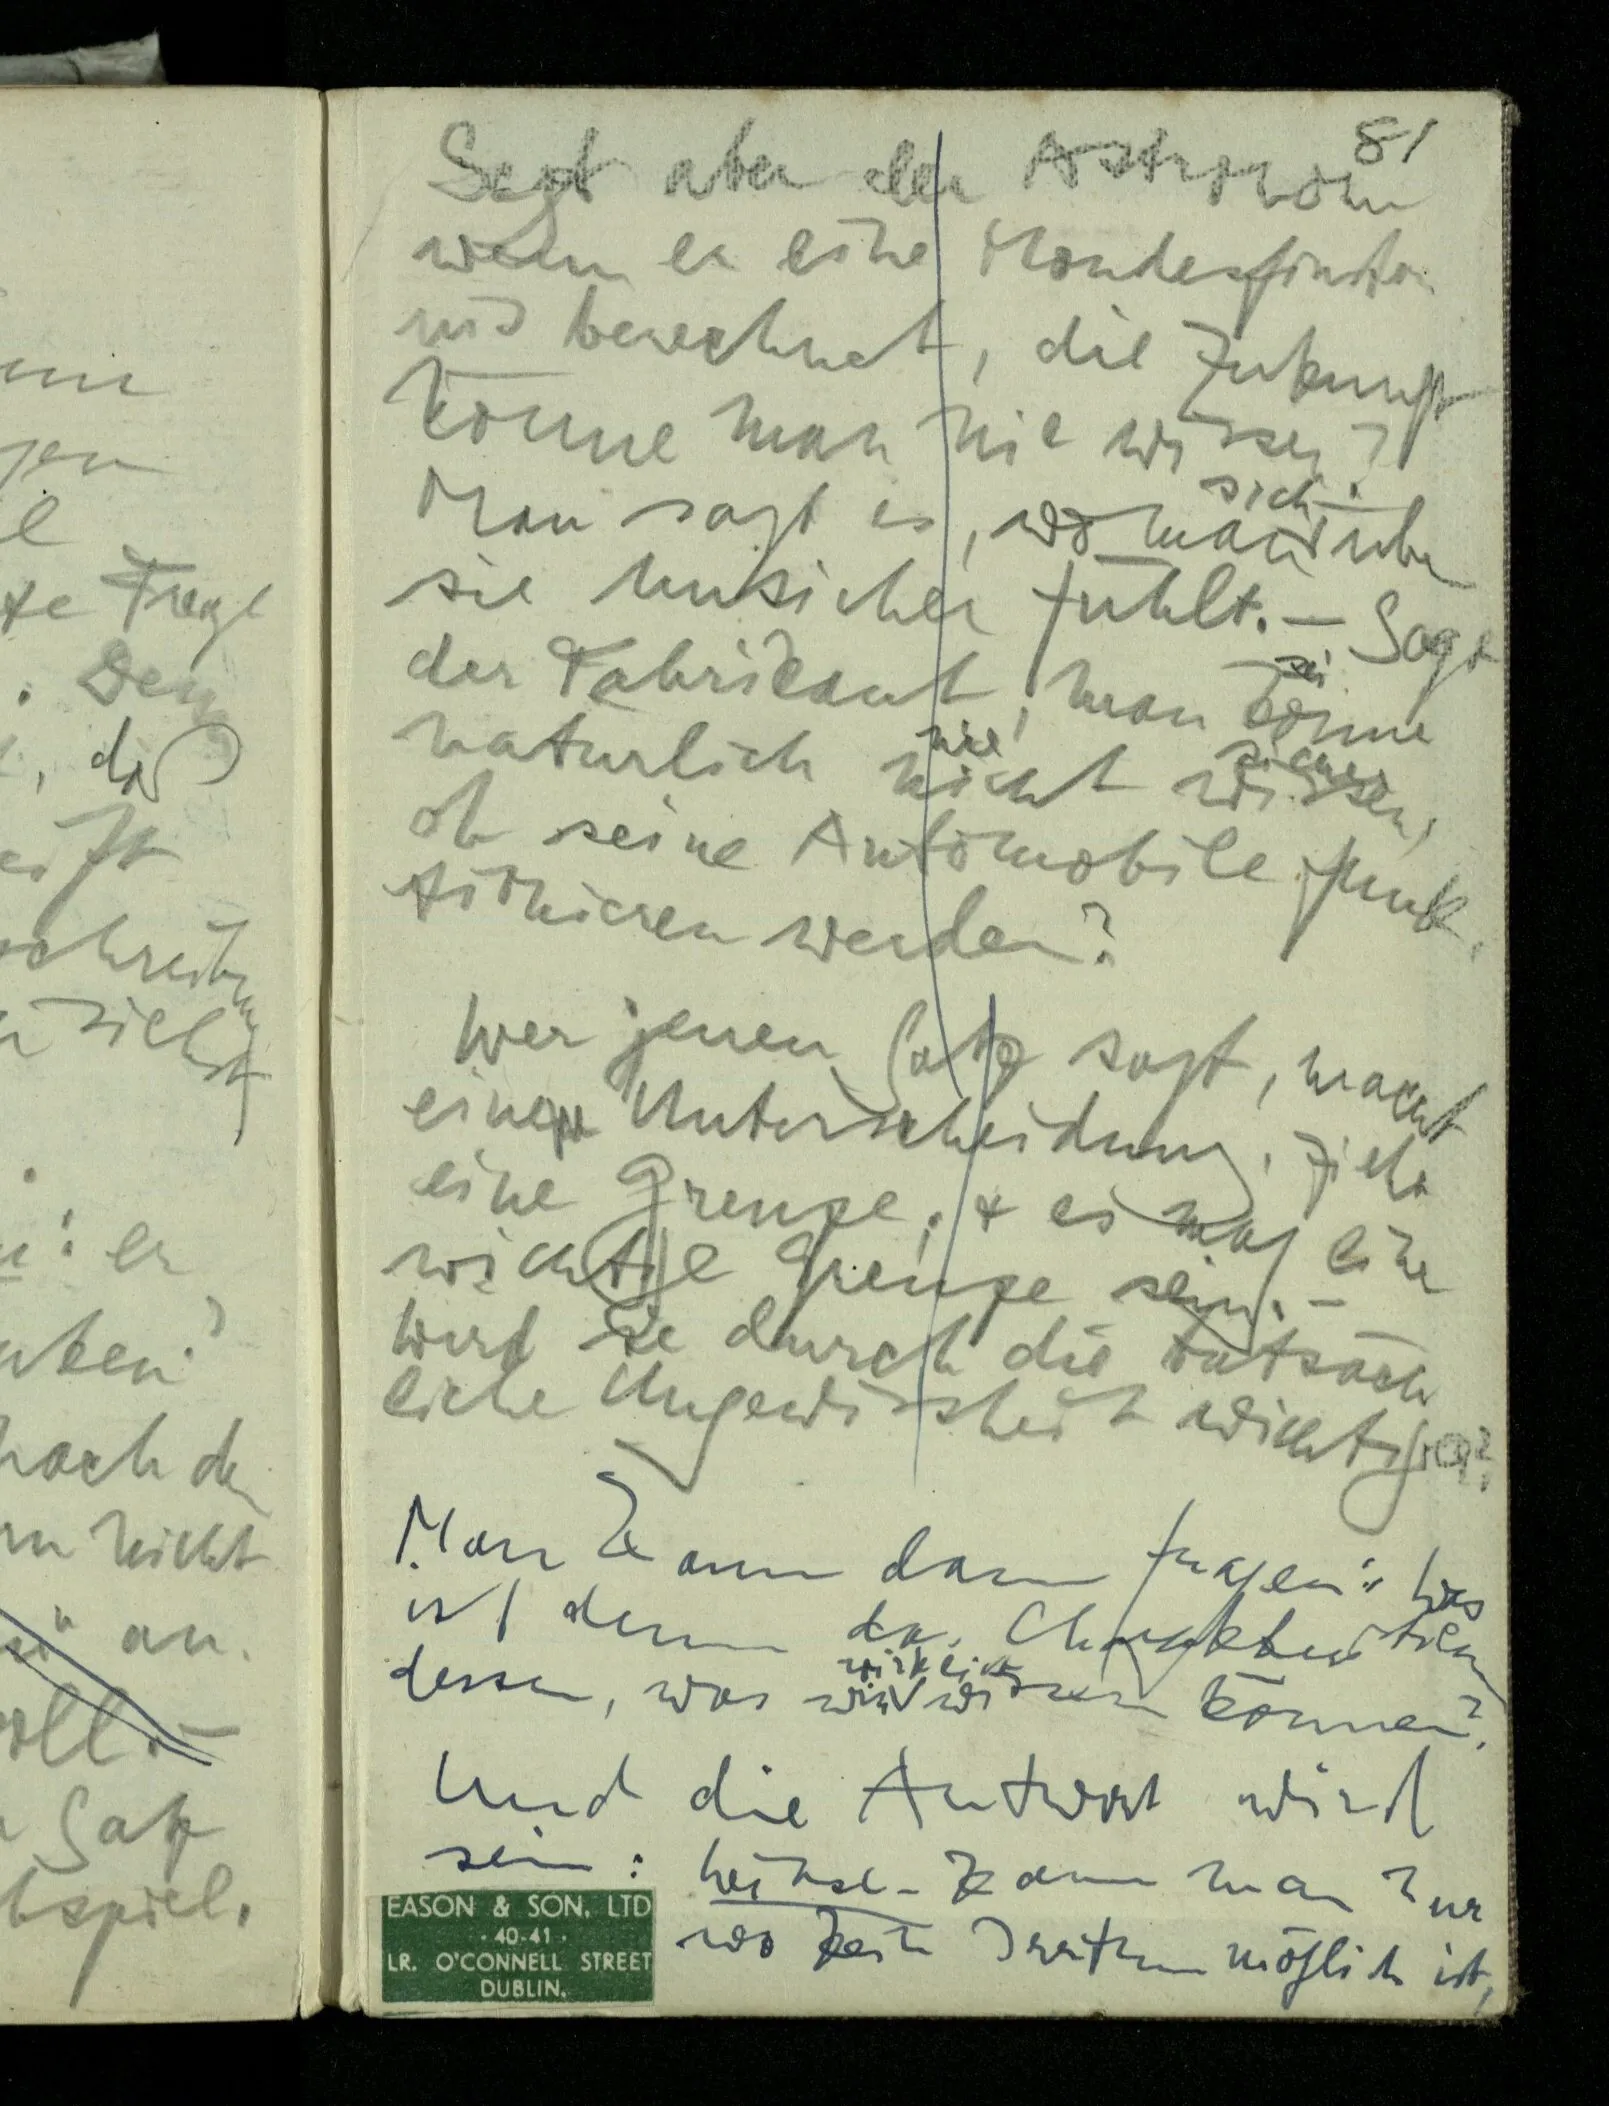 81
Sagt aber der Astronom
wenn er eine Mondesfinster
nis berechnet, die Zukunft
könne man nie wissen?
Man sagt es, wo man sich über
sie unsicher fühlt. – Sagt
der Fabrikant, man könne sei
natürlich nicht nie wissen, sicher
ob seine Automobile funk
tionieren werden?
Wer jenen Satz sagt, macht
eine Unterscheidung, zieht
eine Grenze; & es mag eine
wichtige Grenze sein. –
Wird sie durch die tatsäch
liche Ungewißheit wichtiger?
Man kann dann fragen: Was
ist denn das Charakteristikum
dessen, was wir wirklich wissen können?
Und die Antwort wird
sein: wissen kann man nur
wo kein Irrtum möglich ist,
EASON & SON, LTD
· 40-41 ·
LR. O'CONNELL STREET
DUBLIN.
te Frage
. Denn
schreib
: er
nach der
nicht
an.
Satz